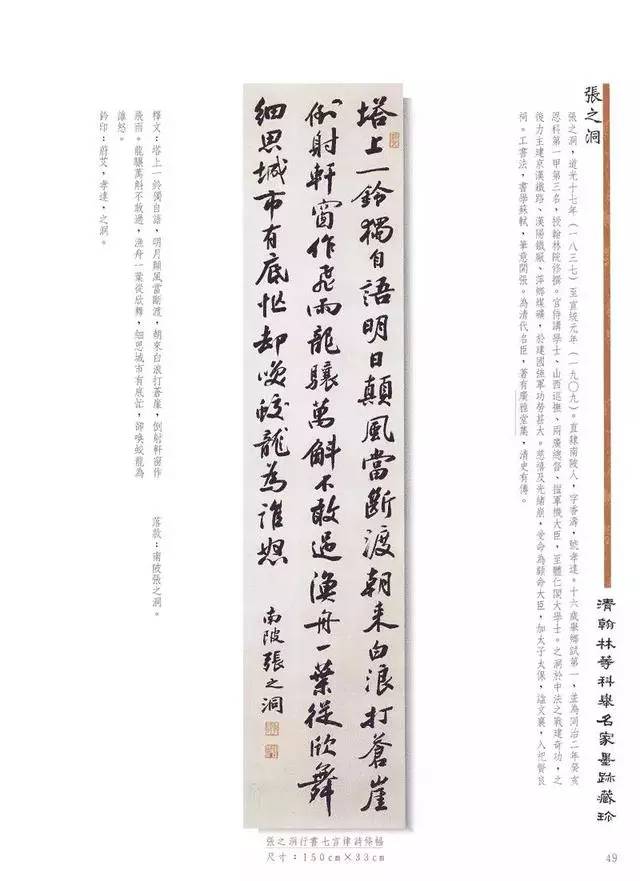 清翰林等科舉名家墨跡藏珍
張之洞
張之洞，道光十七年（一八三七）至宣統元年（一九〇九）。直隸南陂人，字香濤，號孝達。十六歲舉鄉試第一，並為同治二年癸亥
恩科第一甲第三名，授翰林院修撰。官侍講學士、山西巡撫、兩廣總督、擢軍機大臣，至體仁閣大學士。之洞於中法之戰建奇功，之
後力主建京漢鐵路、漢陽鐵廠、萍鄉煤礦，於建國強軍功勞甚大。慈禧及光緒崩，受命為顧命大臣，加太子太保，諡文襄，入祀賢良
祠。工書法，書學蘇軾，筆意開張。為清代名臣，著有廣雅堂集，清史有傳。
塔上一鈴獨自語明日顛風當斷渡朝来白浪打蒼崖
倒射軒窗作飛雨龍驤萬斛不敢過漁舟一葉從欣舞
細思城市有底忙却喚蛟龍為誰怒
南陂張之洞
釋文：塔上一鈴獨自語，明月顛風當斷渡，胡來白浪打蒼崖，倒射軒窗作
飛雨。龍驤萬斛不敢過，漁舟一葉從欣舞，細思城市有底忙，卻喚蛟龍為
誰怒。
落款：南陂張之洞。
鈐印：蔚艾，孝達，之洞。
張之洞行書七言律詩條幅
尺寸：150cm×33cm
49